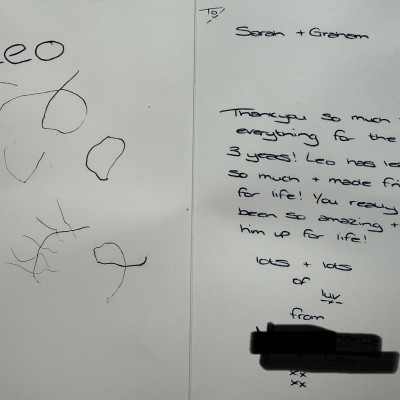 Leo
To
Sarah + Graham
Thankyou so much
everything for the
3 years! Leo has
so much + made
for life! You really
been so amazing +
him up for life!
lots + lots
of
luv
from
xx
xx